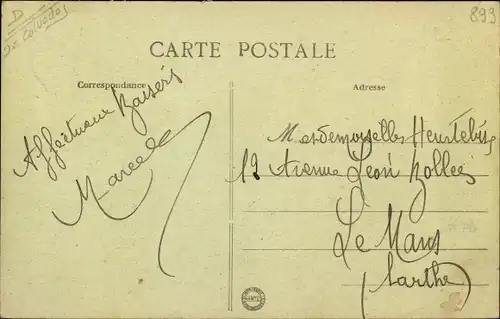 D
Calvados
893
CARTE POSTALE
Correspondance
Adresse
Affectueux Baisers
Marcel
Mesdemoiselles Heurtebise
12 Avenue Léon Bollée
Le Mans
(Sarthe)